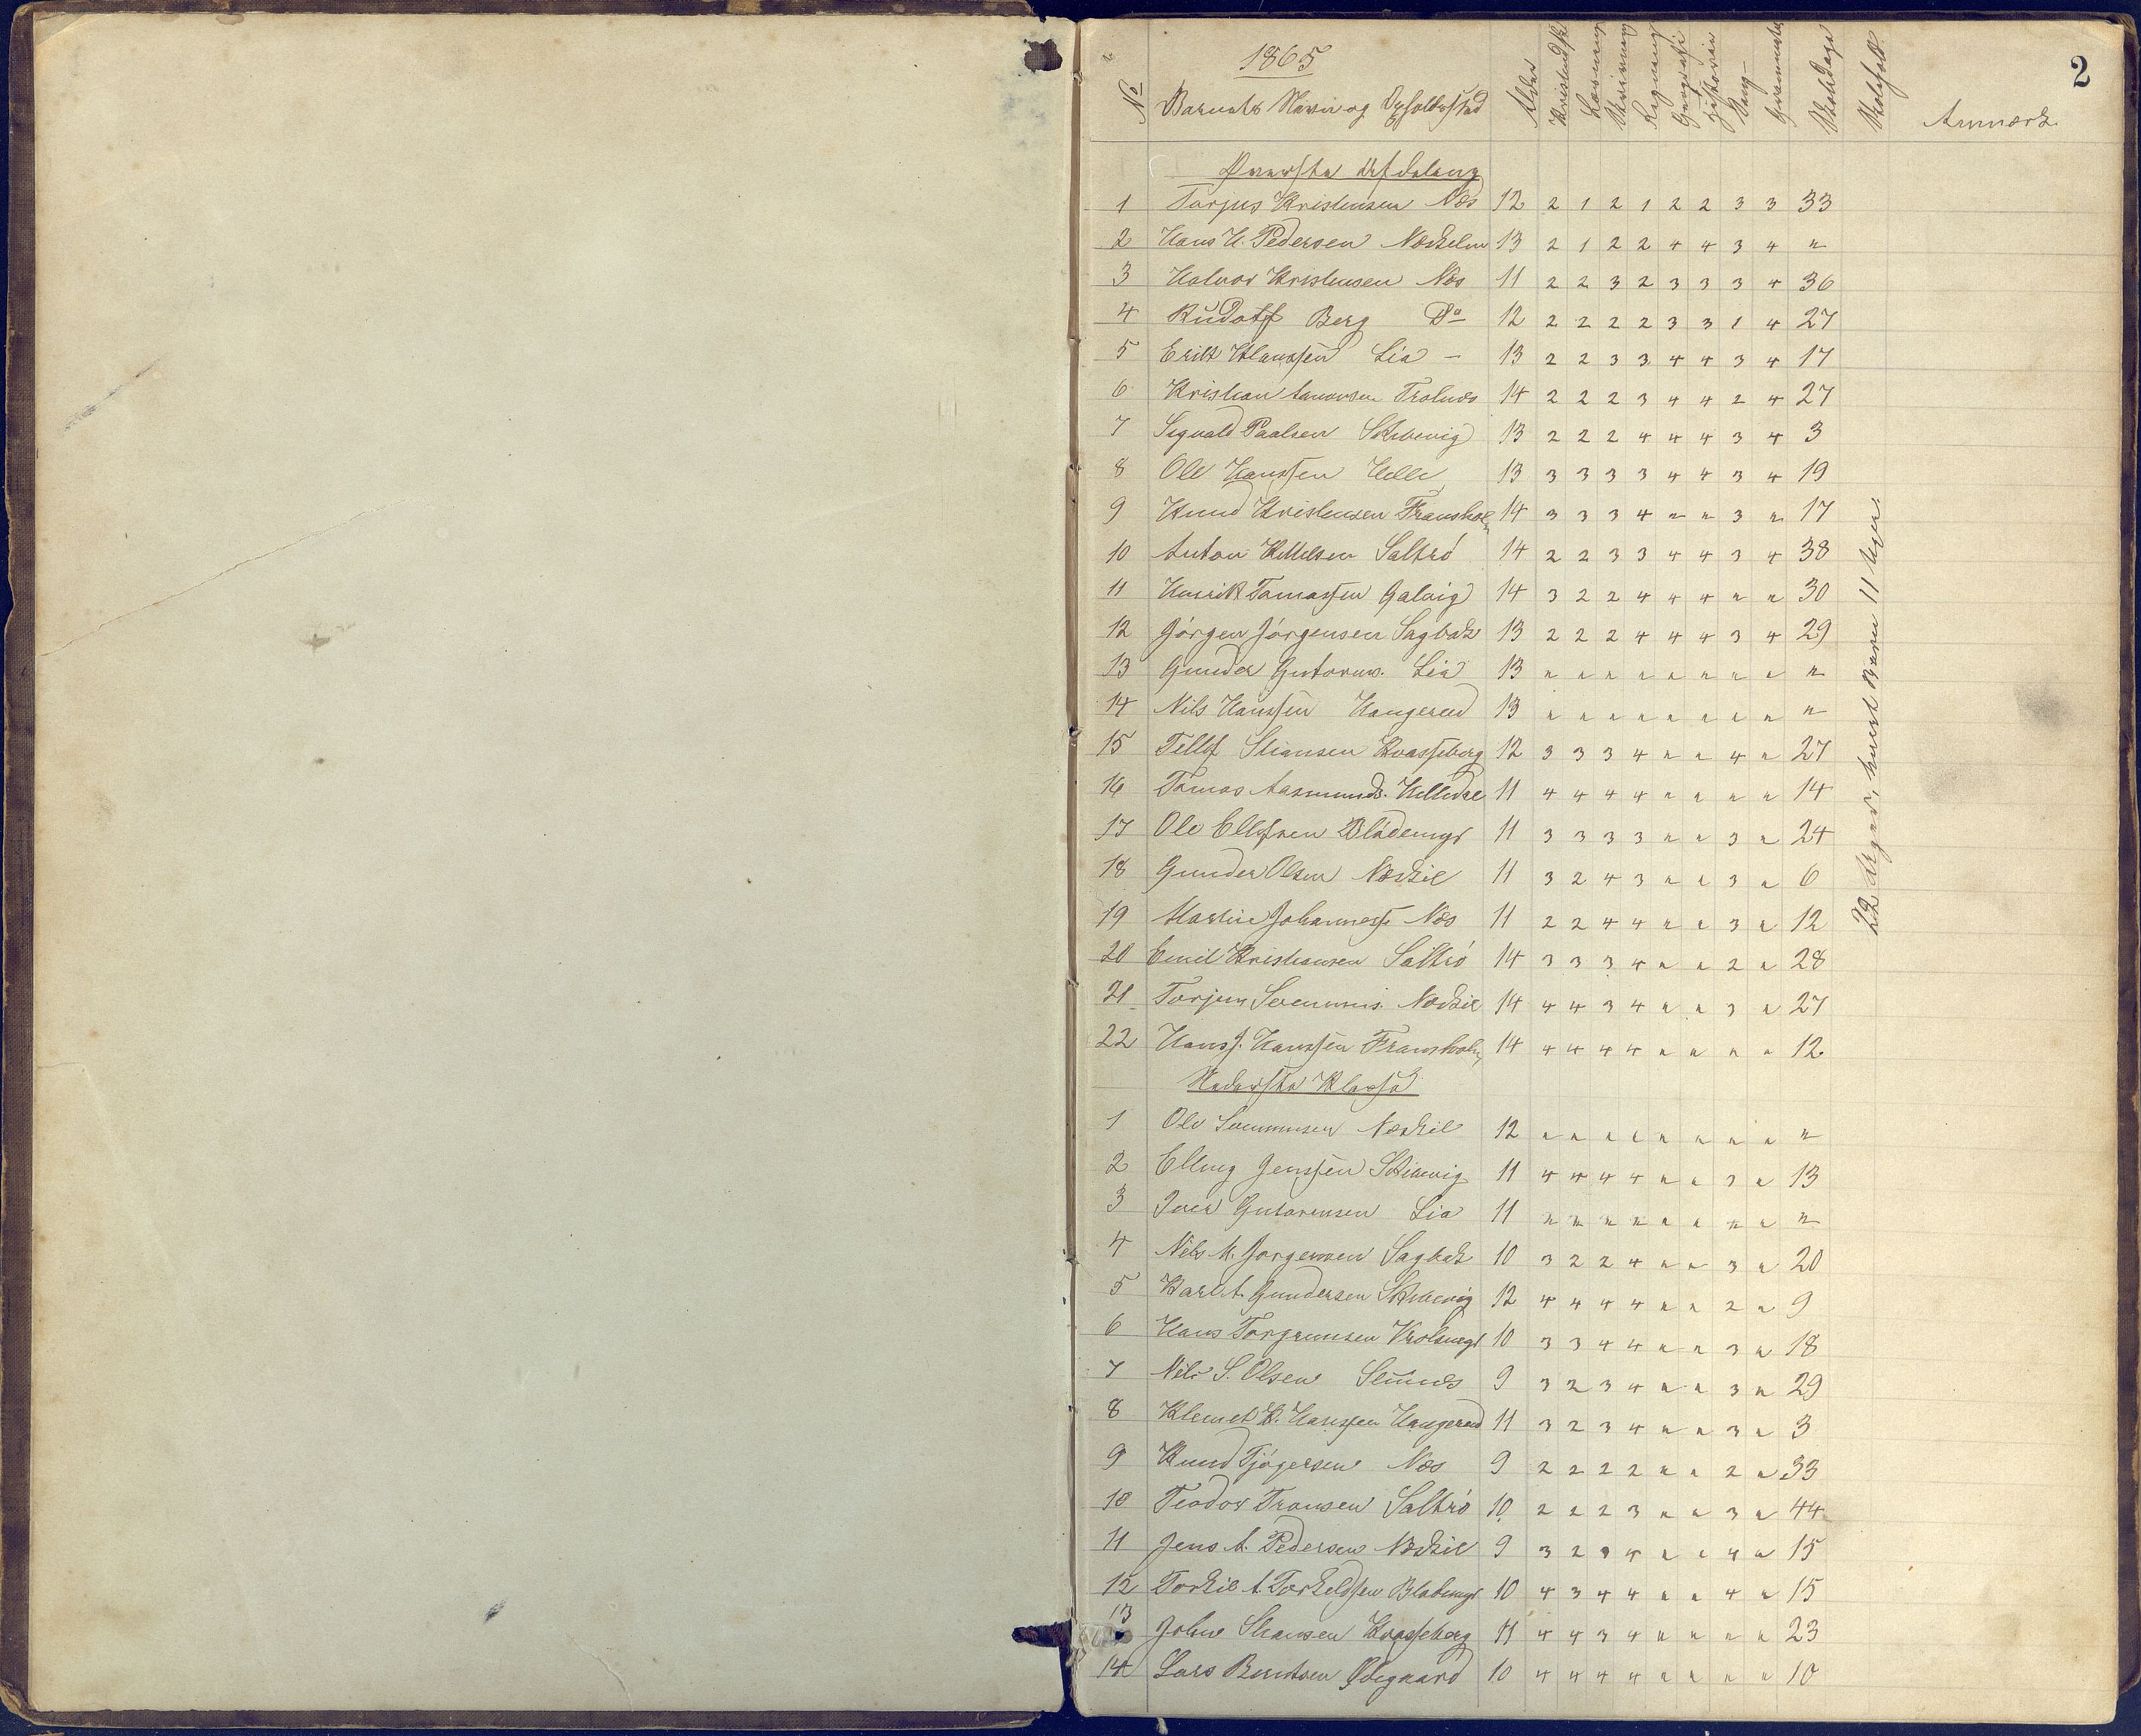 2
1865
No Barnets Navn og Opholdssted Alder Kristendsk. Læsning Skrivning Regning Geografi Historie Sang Skoledage Anmærk.
Øverste Afdeling
1 Torjus Kristensen Næs 12 2 1 2 1 2 2 3 3 33
2 Hans H. Pedersen 13 2 1 2 2 4 4 3 4 "
3 Halvor Kristensen Næs 11 2 2 3 2 3 3 3 4 36
4 Rudolf Berg Do 12 2 2 2 2 3 3 1 4 27
5 Erik Hanssen Lia - 13 2 2 3 3 4 4 3 4 17
6 Kristian 14 2 2 2 3 4 4 2 4 27
7 Sigvald Paalsen 13 2 2 2 4 4 4 3 4 3
8 Ole Hanssen Helle 13 3 3 3 3 4 4 3 4 19
9 Knud Kristensen Fransholm 14 3 3 3 4 " " 3 " 17
10 Anton Kittelsen Saltrö 14 2 2 3 3 4 4 3 4 38
11 Henrik Tomassen Galvig 14 3 2 2 4 4 4 " " 30
12 Jörgen Jörgensen Sagbak 13 2 2 2 4 4 4 3 4 29
13 Gunder Gutorms. Lia 13 " " " " " " " " "
14 Nils Hanssen Haugerød 13 " " " " " " " " "
15 Tellef Stiansen Kvasseberg 12 3 3 3 4 " " 4 " 27
16 Tomas Aasmunds. 11 4 4 4 4 " " " " 14
17 Ole Ellefsen Blödemyr 11 3 3 3 3 " " 3 " 24
18 Gunder Olsen Næskil 11 3 2 4 3 " " 3 " 6
19 Johanness. Næs 11 2 2 4 4 " " 3 " 12
20 Emil Kristiansen Saltrö 14 3 3 3 4 " " 2 " 28
21 Torjus Næskil 14 4 4 3 4 " " 3 " 27
22 Hans J. Hanssen Fransholm 14 4 4 4 4 " " " " 12
22 Uger, hvert Barn 11 Uger
Nederste Klasse
1 Ole Næskil 12 " " " " " " " " "
2 Elling Jenssen 11 4 4 4 4 " " 3 " 13
3 Iver Gutormsen Lia 11 " " " " " " " " "
4 Nils M. Jörgensen Sagbak 10 3 2 2 4 " " 3 " 20
5 Karl A. Gundersen 12 4 4 4 4 " " 2 " 9
6 Hans Torgrimsen 10 3 3 4 4 " " 3 " 18
7 Nils S. Olsen 9 3 2 3 4 " " 3 " 29
8 Klemet K. Hanssen Haugerød 11 3 2 3 4 " " 3 " 3
9 Knud Tjögersen Næs 9 2 2 2 2 " " 2 " 33
10 Teodor Saltrö 10 2 2 2 3 " " 3 " 44
11 Jens A. Pedersen Næskil 9 3 2 3 4 " " 4 " 15
12 Torkil A. Torkeldsen Blödemyr 10 4 3 4 4 " " 4 " 15
13 John Stiansen Kvasseberg 11 4 4 3 4 " " " " 23
14 Lars Berntsen Ödegaard 10 4 4 4 4 " " " " 10